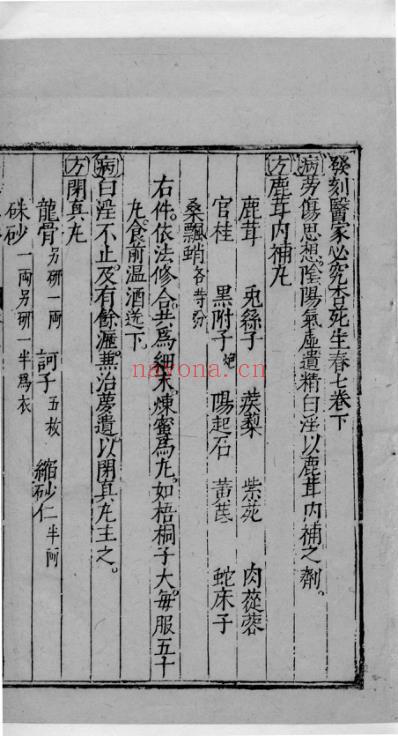 發刻醫家必究杏苑生春七卷下
病勞傷思想陰陽氣虛遺精白淫以鹿茸內補之劑。
方鹿茸內補丸
鹿茸 兎絲子 蒺藜 紫菀 肉蓯蓉
官桂 黑附子炮 陽起石 黃芪 蛇床子
桑飄蛸各等分
右件。依法修合。共為細末。煉蜜為丸。如梧桐子大。每服五十
丸。食前温酒送下。
病白淫不止。及有餘瀝。兼治夢遺。以閉真丸主之。
方閉真丸
龍骨另研一兩 訶子五枚 縮砂仁半兩
硃砂一兩另研一半為衣
nayona.cn